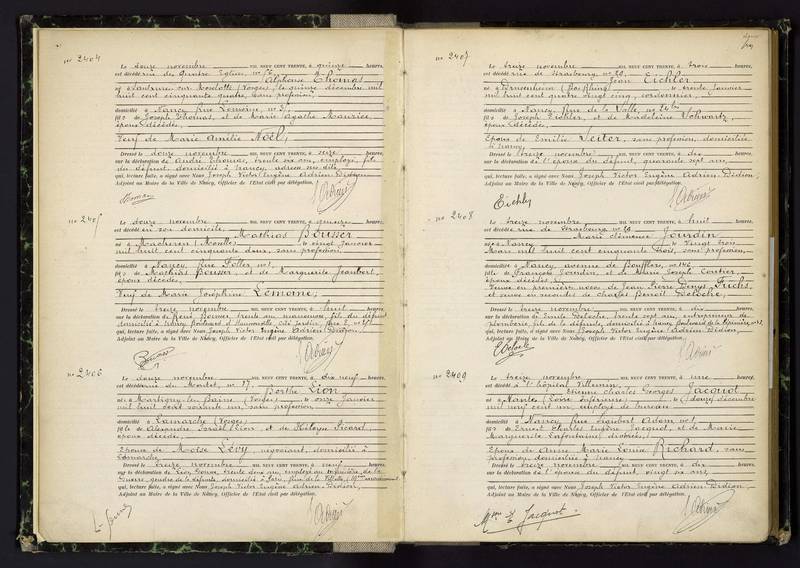 No 2404
Le douze novembre MIL NEUF CENT TRENTE, à quinze heures,
est décédé rue des Quatre Eglises, no
Alphonse Thomas
né à (Vosges), le quinze décembre mil
huit cent cinquante quatre, sans profession,
domicilié à Nancy, Rue Lemoine, no
fils de Joseph Thomas, et de Marie Agathe Maurice,
époux décédés,
Veuf de Marie Amélie Noël,
Dressé le douze novembre MIL NEUF CENT TRENTE, à seize heures,
sur la déclaration de André Thomas, trente six ans, employé, fils
du défunt, domicilié à Nancy, adresse sus dite,
qui, lecture faite, a signé avec Nous Joseph Victor Eugène Adrien Didion,
Adjoint au Maire de la Ville de Nancy, Officier de l'Etat civil par délégation.
No 2405
Le douze novembre MIL NEUF CENT TRENTE, à heures,
est décédé en son domicile, Mathias Bousser
né à Macheren (Moselle) le vingt janvier
mil huit cent cinquante deux, sans profession,
domicilié à Nancy, Rue
fils de Mathias Bousser, et de Marguerite
époux décédés,
Veuf de Marie Joséphine Lemoine,
Dressé le treize novembre MIL NEUF CENT TRENTE, à huit heures,
sur la déclaration de René Bousser, trente ans, fils du défunt
domicilié à Nancy, Boulevard
qui, lecture faite, a signé avec Nous Joseph Victor Eugène Adrien Didion,
Adjoint au Maire de la Ville de Nancy, Officier de l'Etat civil par délégation.
No 2406
Le douze novembre MIL NEUF CENT TRENTE, à dix neuf heures,
est décédée rue du Montet, no 17,
Berthe Lion
née à Martigny-les-Bains (Vosges) le onze janvier
mil huit cent soixante un, sans profession,
domiciliée à Lamarche (Vosges)
fille de Alexandre Israël Lion, et de Picard
époux décédés,
Epouse de Moïse Lévy, négociant, domicilié à
Lamarche,
Dressé le treize novembre MIL NEUF CENT TRENTE, à neuf heures,
sur la déclaration de trente deux ans, employé au ministère de la
Guerre, gendre de la défunte, domicilié à Paris,
qui, lecture faite, a signé avec Nous Joseph Victor Eugène Adrien Didion,
Adjoint au Maire de la Ville de Nancy, Officier de l'Etat civil par délégation.
No 2407
Le treize novembre MIL NEUF CENT TRENTE, à trois heures,
est décédé rue de Strasbourg, no
Jean Eichler
né à (Bas Rhin) le trente janvier
mil huit cent quatre vingt cinq, cordonnier,
domicilié à Nancy, Rue de la Salle, no
fils de Joseph Eichler, et de Madeleine Schwartz,
époux décédés,
Epoux de Emilie sans profession, domiciliée
à Nancy,
Dressé le treize novembre MIL NEUF CENT TRENTE, à dix heures,
sur la déclaration de l'épouse du défunt, quarante sept ans,
qui, lecture faite, a signé avec Nous Joseph Victor Eugène Adrien Didion,
Adjoint au Maire de la Ville de Nancy, Officier de l'Etat civil par délégation.
Eichler
No 2408
Le treize novembre MIL NEUF CENT TRENTE, à huit heures,
est décédée rue de Strasbourg, no
Marie Clémence Jourdin
née à Nancy le vingt trois
mars mil huit cent cinquante trois, sans profession,
domiciliée à Nancy, avenue de Boufflers, no
fille de François Jourdin, et de Marie Joseph
époux décédés,
Veuve en premières noces de Jean Pierre Denys Fuchs,
et veuve en secondes de Charles Benoît Deloche,
Dressé le treize novembre MIL NEUF CENT TRENTE, à dix heures,
sur la déclaration de Emile Deloche, trente sept ans, entrepreneur de
plomberie, fils de la défunte, domicilié à Nancy, Boulevard de la
qui, lecture faite, a signé avec Nous Joseph Victor Eugène Adrien Didion,
Adjoint au Maire de la Ville de Nancy, Officier de l'Etat civil par délégation.
No 2409
Le treize novembre MIL NEUF CENT TRENTE, à une heures,
est décédé à l'hôpital Villemin,
Etienne Charles Georges Jacquot
né à Nantes (Loire Inférieure) le douze décembre
mil neuf cent un, employé de bureau
domicilié à Nancy, Rue Sigisbert Adam, no
fils de Ernest Charles Eugène Jacquot, et de Marie
Marguerite Lafontaine, divorcés,
Epoux de Anne Marie Louise Richard, sans
profession, domiciliée à Nancy,
Dressé le treize novembre MIL NEUF CENT TRENTE, à dix heures,
sur la déclaration de l'épouse du défunt, vingt six ans,
qui, lecture faite, a signé avec Nous Joseph Victor Eugène Adrien Didion,
Adjoint au Maire de la Ville de Nancy, Officier de l'Etat civil par délégation.
Jacquot